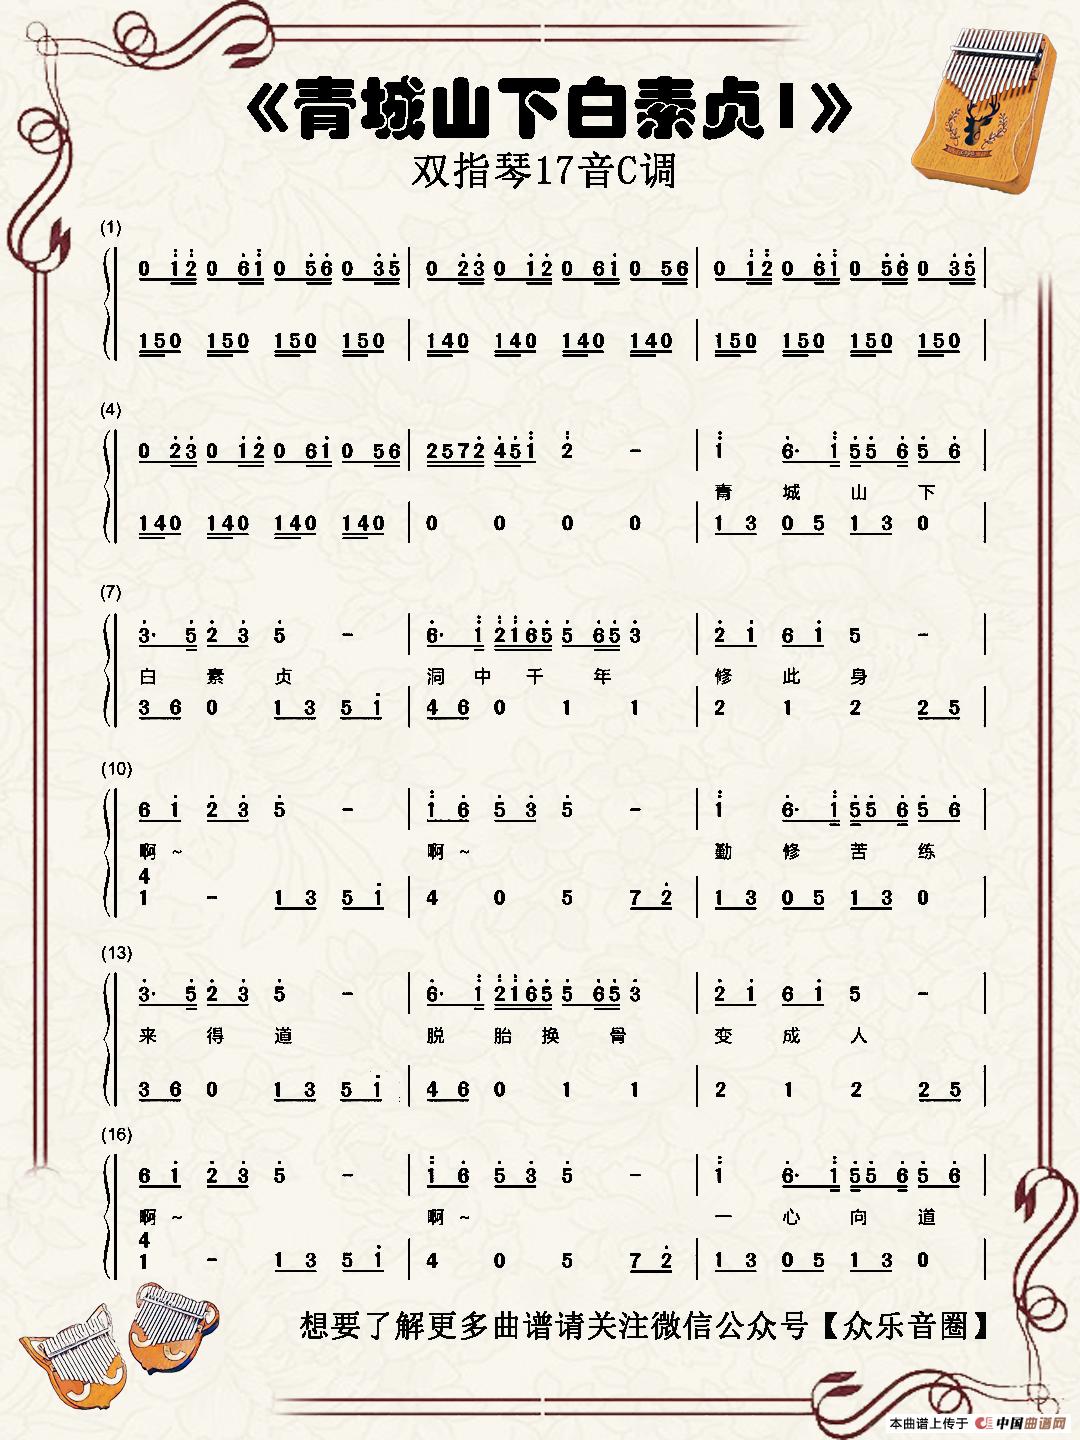 《青城山下白素贞1》
双指琴17音C调
(1)
0 i̤ 2̤ 0 6̇ i̤ 0 5̇ 6̇ 0 3̇ 5̇ | 0 2̇ 3̇ 0 i̇ 2̇ 0 6 i̇ 0 5 6 | 0 i̤ 2̤ 0 6̇ i̤ 0 5̇ 6̇ 0 3̇ 5̇ |
150 150 150 150 | 140 140 140 140 | 150 150 150 150 |
(4)
0 2̇ 3̇ 0 1̇ 2̇ 0 6 1̇ 0 5 6 | 2 5 7 2̇ 4̇ 5̇ 1̈ 2̈ - | 1̈ 6̇· 1̈ 5̇ 5̇ 6̇ 5̇ 6̇ |
青 城 山 下
140 140 140 140 | 0 0 0 0 | 1 3 0 5 1 3 0 |
(7)
3̇· 5̇ 2̇ 3̇ 5̇ - | 6̇· 1̈ 2̈ 1̈ 6̇ 5̇ 5̇ 6̇ 5̇ 3̇ | 2̇ 1̇ 6 1̇ 5 - |
白 素 贞 洞 中 千 年 修 此 身
3 6 0 1 3 5 1̇ | 4 6 0 1 1 | 2 1 2 2 5 |
(10)
6 1̇ 2̇ 3̇ 5̇ - | 1̈ 6̇ 5̇ 3̇ 5̇ - | 1̈ 6̇· 1̈ 5̇ 5̇ 6̇ 5̇ 6̇ |
啊~ 啊~ 勤 修 苦 练
4
1 - 1 3 5 1̇ | 4 0 5 7 2̇ | 1 3 0 5 1 3 0 |
(13)
3̇· 5̇ 2̇ 3̇ 5̇ - | 6̇· 1̈ 2̈ 1̈ 6̇ 5̇ 5̇ 6̇ 5̇ 3̇ | 2̇ 1̇ 6 1̇ 5 - |
来 得 道 脱 胎 换 骨 变 成 人
3 6 0 1 3 5 1̇ | 4 6 0 1 1 | 2 1 2 2 5 |
(16)
6 1̇ 2̇ 3̇ 5̇ - | 1̈ 6̇ 5̇ 3̇ 5̇ - | 1̈ 6̇· 1̈ 5̇ 5̇ 6̇ 5̇ 6̇ |
啊~ 啊~ 一 心 向 道
4
1 - 1 3 5 1̇ | 4 0 5 7 2̇ | 1 3 0 5 1 3 0 |
想要了解更多曲谱请关注微信公众号【众乐音圈】
本曲谱上传于 中国曲谱网